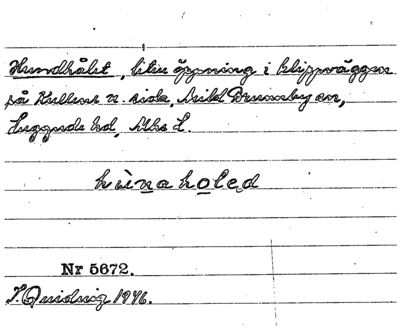 Hundhålet, liten öppning i klippväggen
på Kullens n. sida, Arild Brunnby sn,
Luggude hd, Mbs L.
hùnaholed
Nr 5672.
1946.